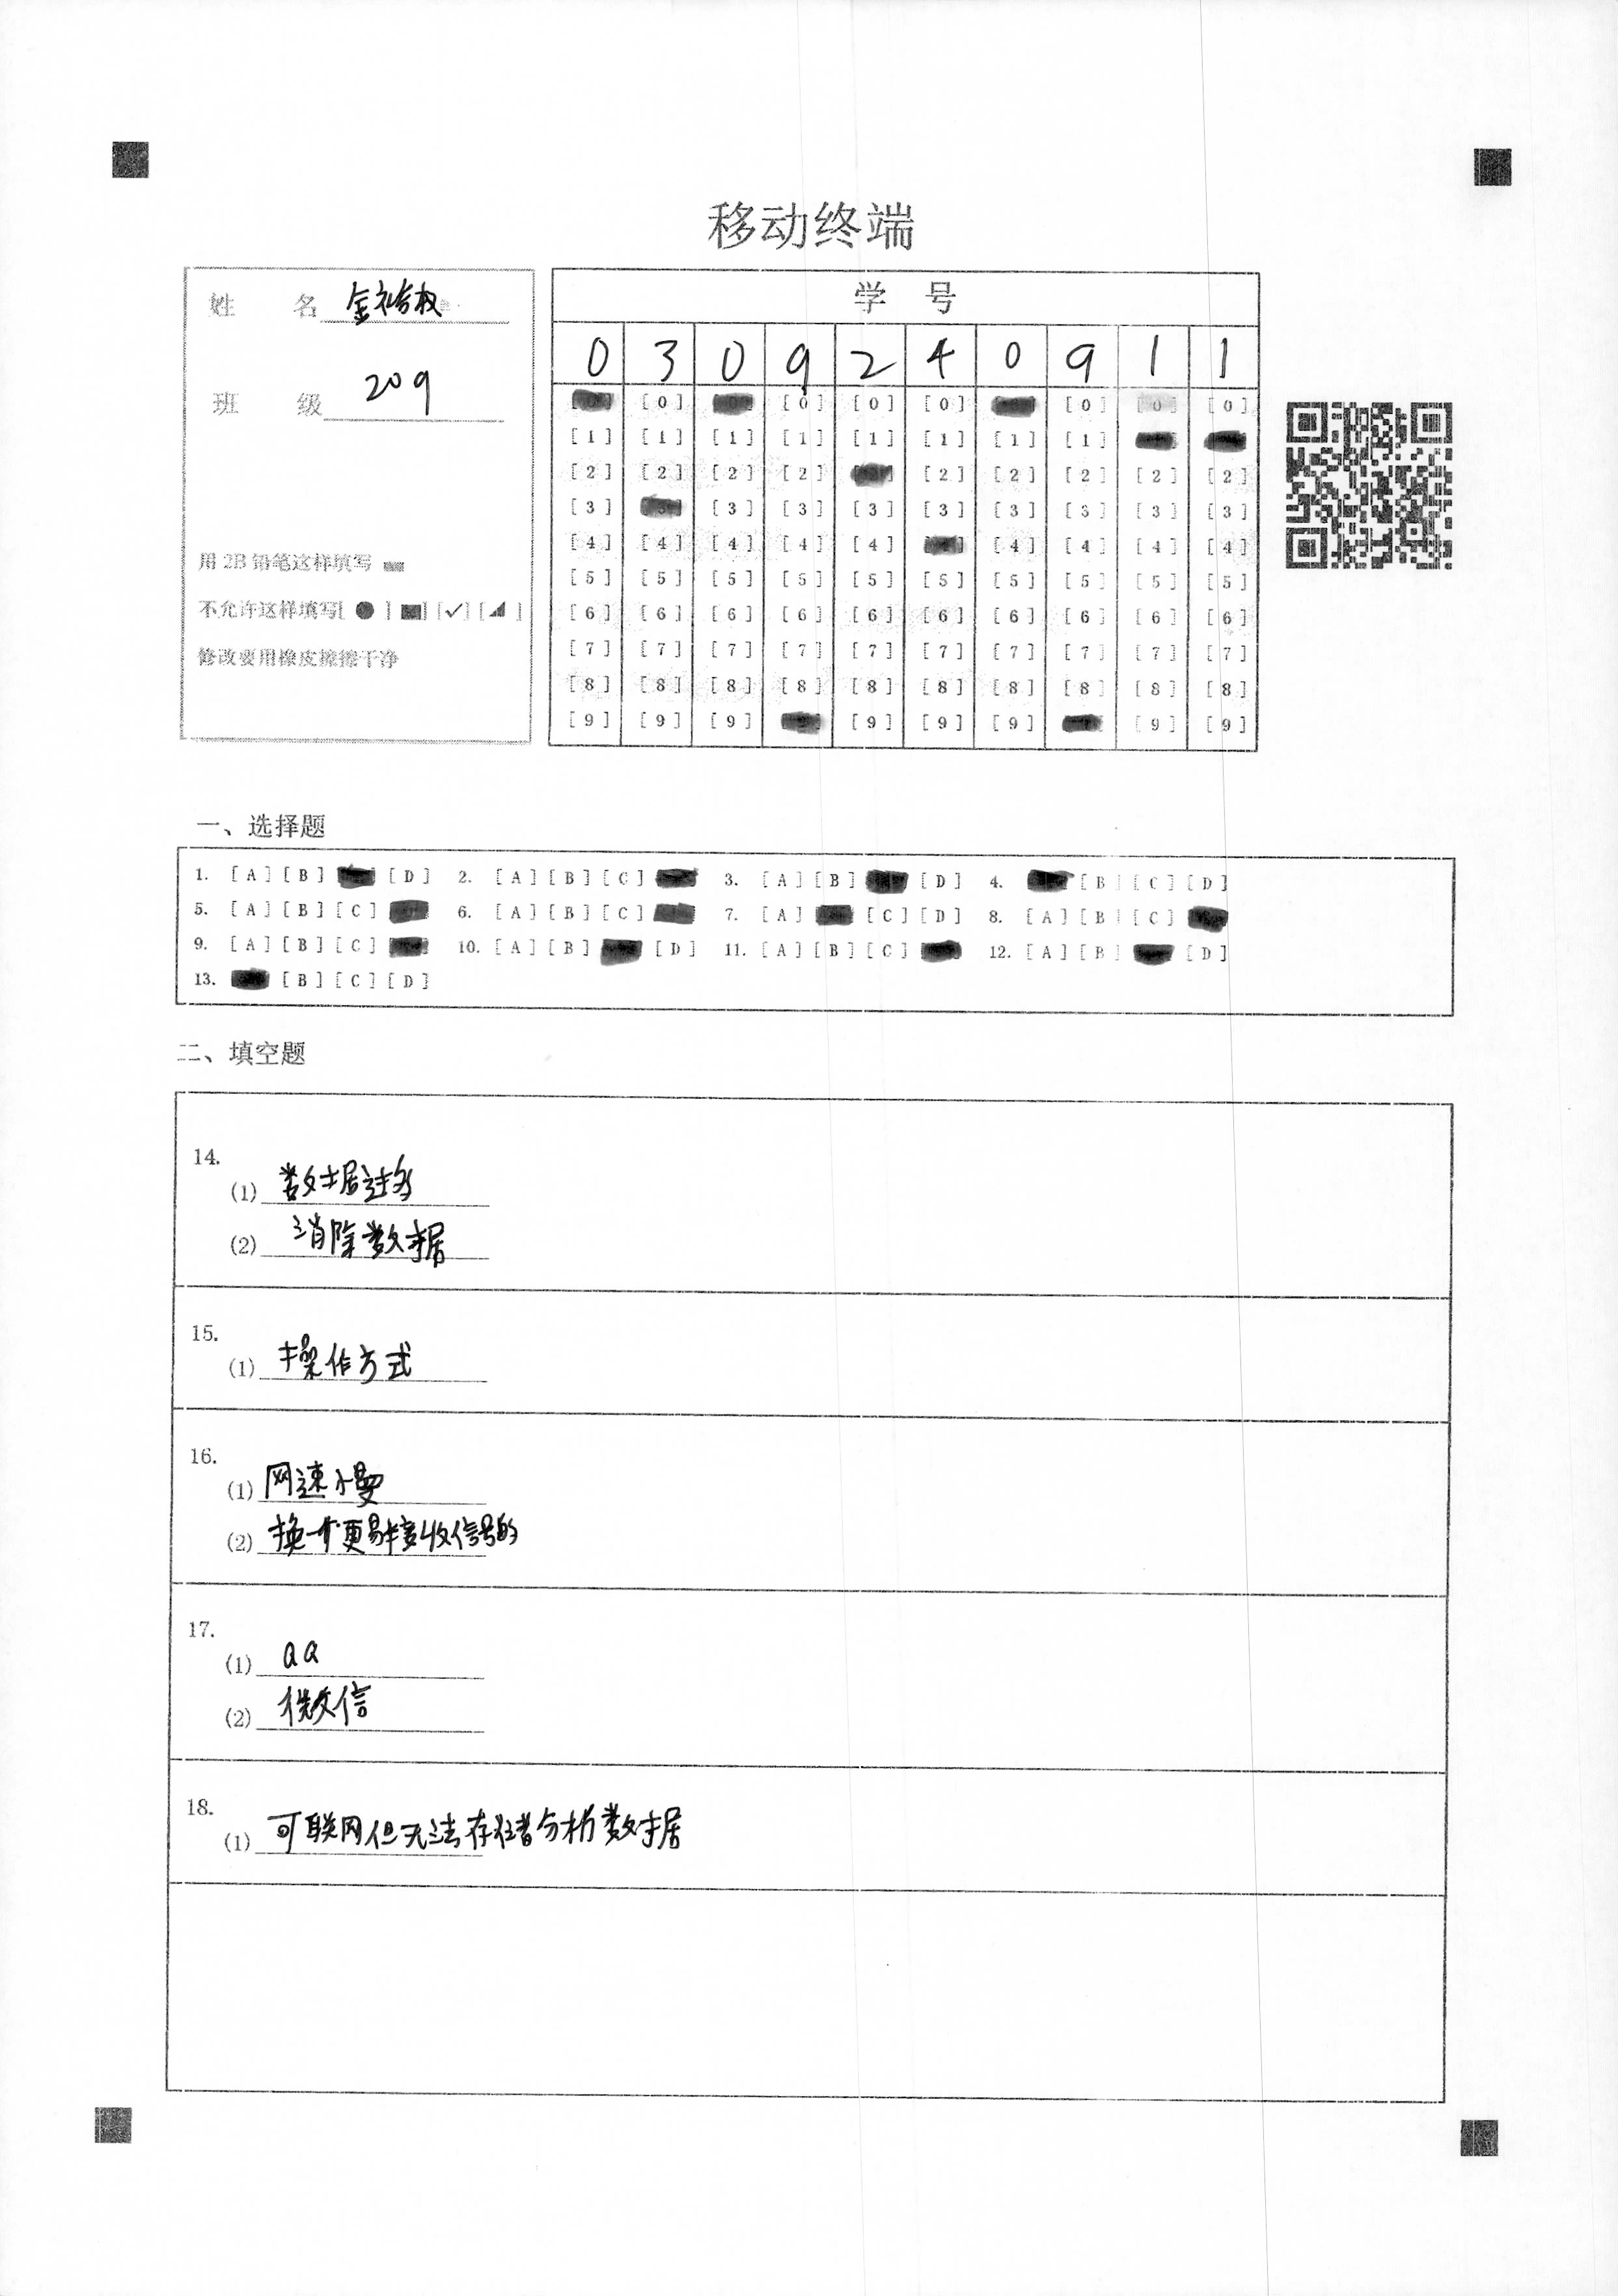 移动终端
姓 名 金裕权
班 级 209
用 2B 铅笔这样填写
不允许这样填写[ ● ] [✓] [ ]
修改要用橡皮擦擦干净
学 号
0 3 0 9 2 4 0 9 1 1
[0] [0] [0] [0] [0] [0]
[1] [1] [1] [1] [1] [1] [1] [1]
[2] [2] [2] [2] [2] [2] [2] [2] [2]
[3] [3] [3] [3] [3] [3] [3] [3] [3]
[4] [4] [4] [4] [4] [4] [4] [4] [4]
[5] [5] [5] [5] [5] [5] [5] [5] [5] [5]
[6] [6] [6] [6] [6] [6] [6] [6] [6] [6]
[7] [7] [7] [7] [7] [7] [7] [7] [7] [7]
[8] [8] [8] [8] [8] [8] [8] [8] [8] [8]
[9] [9] [9] [9] [9] [9] [9] [9]
一、选择题
1. [A] [B] [D] 2. [A] [B] [C] 3. [A] [B] [D] 4. [B] [C] [D]
5. [A] [B] [C] 6. [A] [B] [C] 7. [A] [C] [D] 8. [A] [B] [C]
9. [A] [B] [C] 10. [A] [B] [D] 11. [A] [B] [C] 12. [A] [B] [D]
13. [B] [C] [D]
二、填空题
14.
(1) 数据过多
(2) 消除数据
15.
(1) 操作方式
16.
(1) 网速慢
(2) 换一个更易接收信号的
17.
(1) QQ
(2) 微信
18.
(1) 可联网但无法存储分析数据